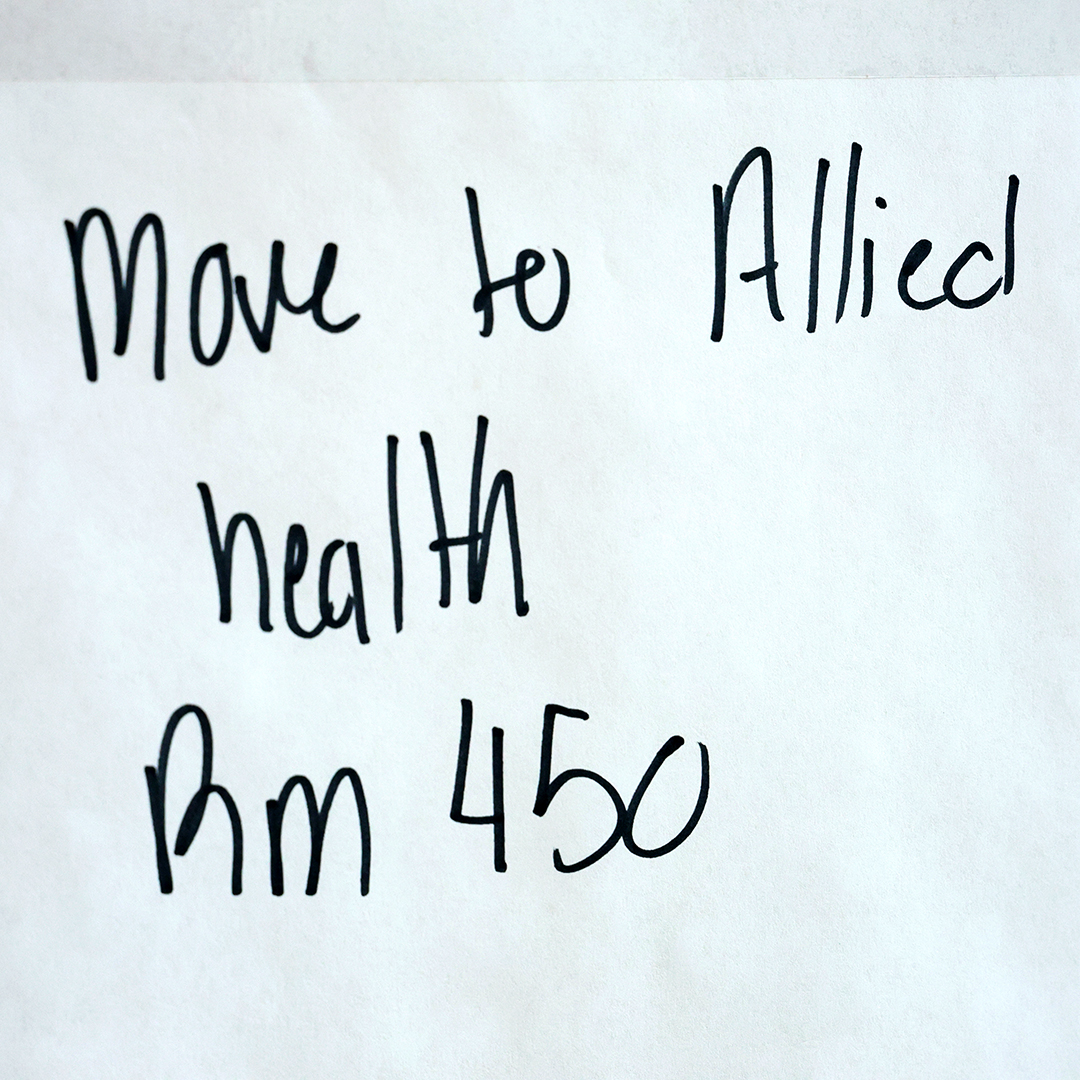 Move to Allied
health
Rm 450